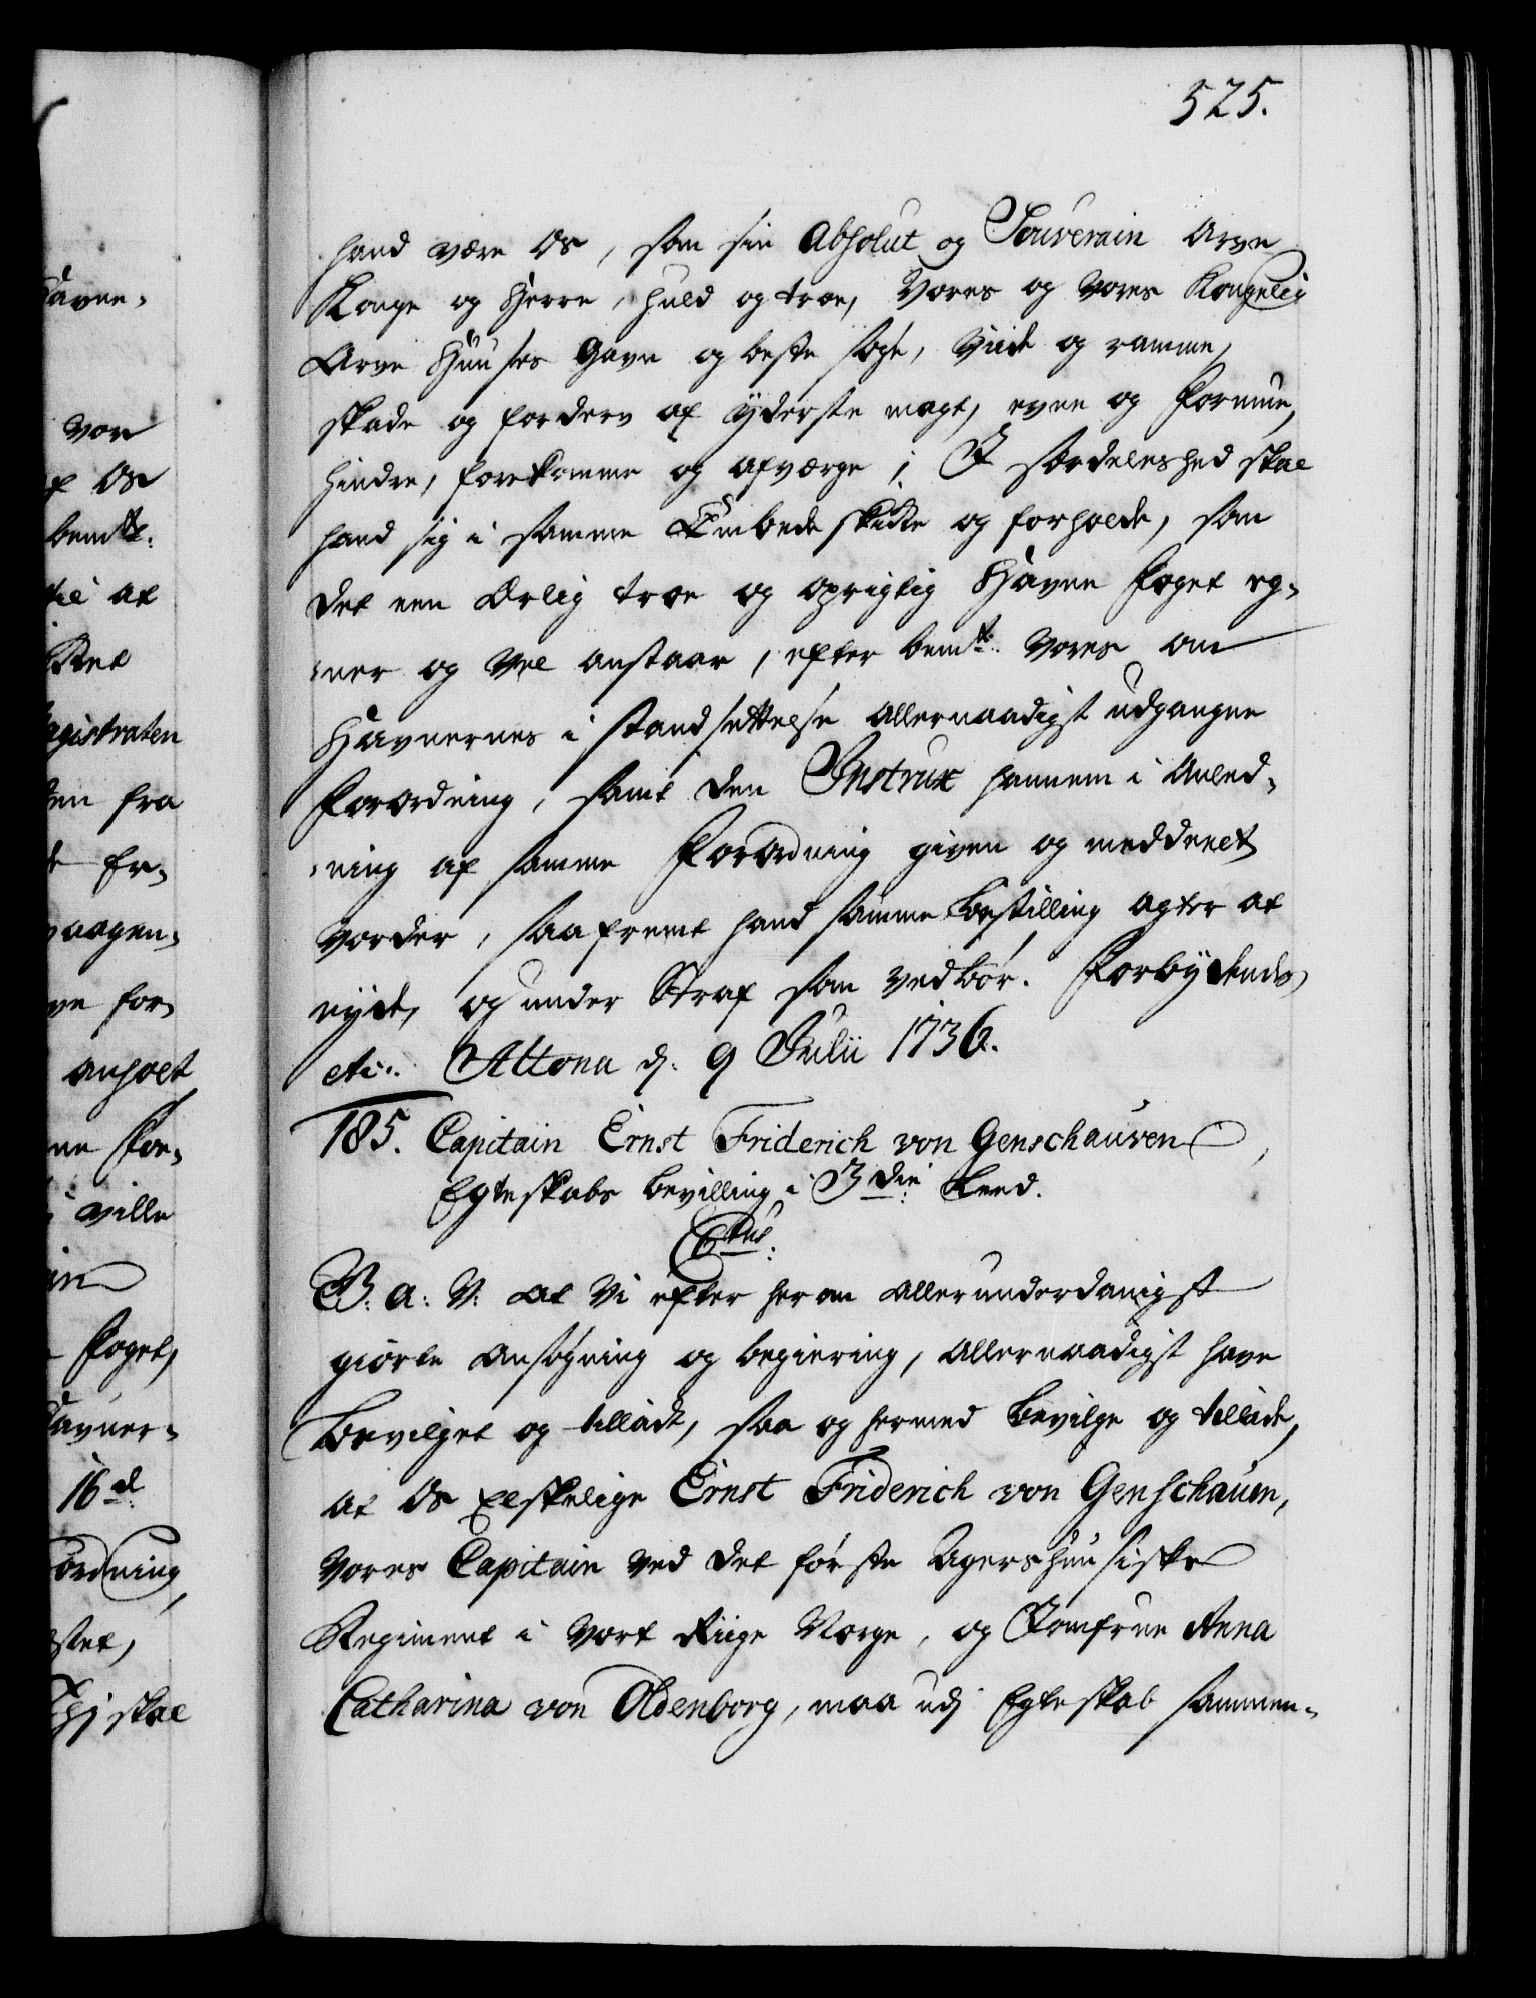 525.
hand være Os, som sin Absolut og Souverain Arve
Konge og Herre, huld og troe, Vores og Vores Kongelig
Arve Huuses Gavn og beste søge, viide og ramme,
skade og forderv af yderste magt, evne og formue,
hindre, forekomme og afværge; I særdeleshed skal
hand sig i samme Embede skikke og forholde, som
det een Ærlig troe og oprigtig Havne foget eg-
ner og vel anstaar, efter bemte Vores om
Havnernes i standsettelse allernaadigst udgangne
forordning, samt den Instrux hannem i Anled-
ning af samme Forordning given og meddeelt
vorder, saafremt hand samme bestilling agter at
nyde, og under Straf som vedbør. Forbydendes
etc: Altona d: 9 Julii 1736.
185. Capitain Ernst Friderich von Genschauven
Egteskabs bevilling i 3die Leed.
C6tus:
G: a: V: at Vi efter herom allerunderdanigst
giorte Ansøgning og begiering, allernaadigst have
bevilget og tilladt, saa og hermed bevilge og tillade,
at Os Elskelige Ernst Friderich von Genschauen,
vores Capitain ved det første Agershuusiske
Regiment i vort Riige Norge, og Jomfrue Anna
Catharina von Oldenborg, maa udj Egteskab sammen-